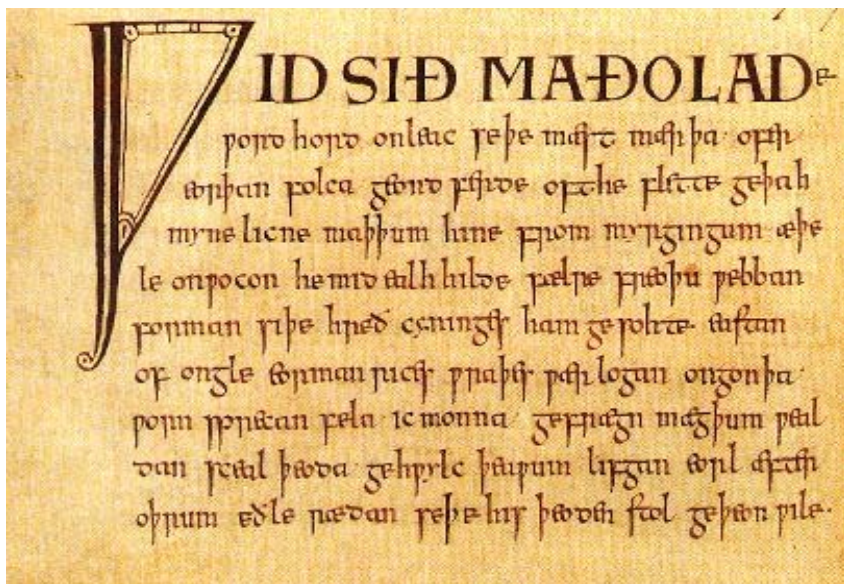 ǷID SIÐ MAÐOLADE
ƿord hord onleac seþe mæst mærþa ofer
eorþan folca geond ferde oft he flette geþah
myne licne maþþum hine from myrgingum æþe
le onƿocon he mid ealh hilde fælre freoþu ƿebban
forman siþe hreð cyninges ham gesohte· eastan
of ongle eorman rices ƿraþes ƿærlogan ongon þa·
ƿorn sprecan fela ic monna· gefrægn mægþum ƿeal
dan sceal þeoda gehƿylc þeaƿum lifgan eorl æfter
oþrum eðle rædan seþe his þeoden stol geþeon ƿile·